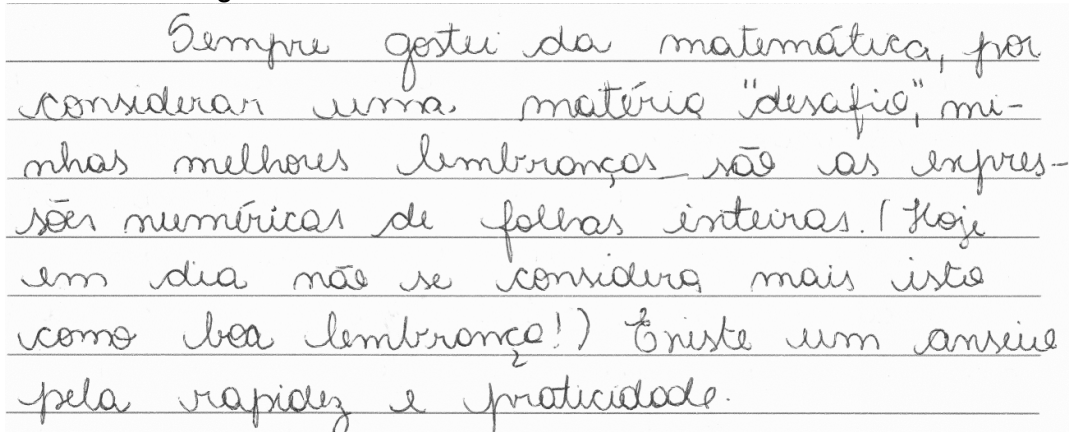 Sempre gostei da matemática, por
considerar uma matéria "desafio", mi-
nhas melhores lembranças são as expres-
sões numéricas de folhas inteiras. (Hoje
em dia não se considera mais isto
como boa lembrança!) Existe um anseio
pela rapidez e praticidade.